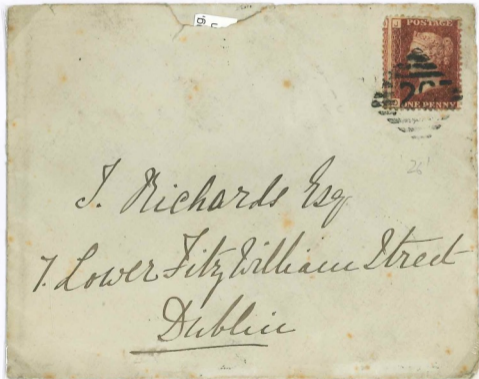 POSTAGE
ONE PENNY
J. Richards Esq
7. Lower Fitz William Street
Dublin